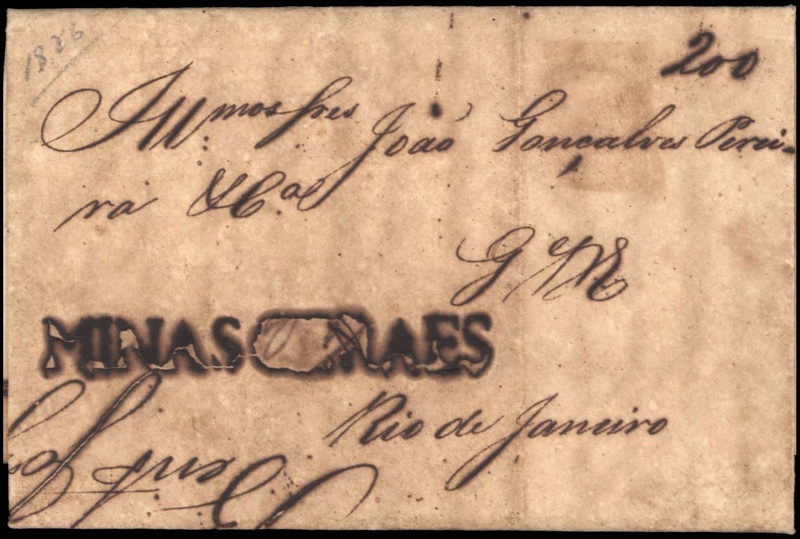 1826
200
Ill.mos Snres João Gonçalves Perei-
ra & Ca
G M R
MINAS
Rio de Janeiro